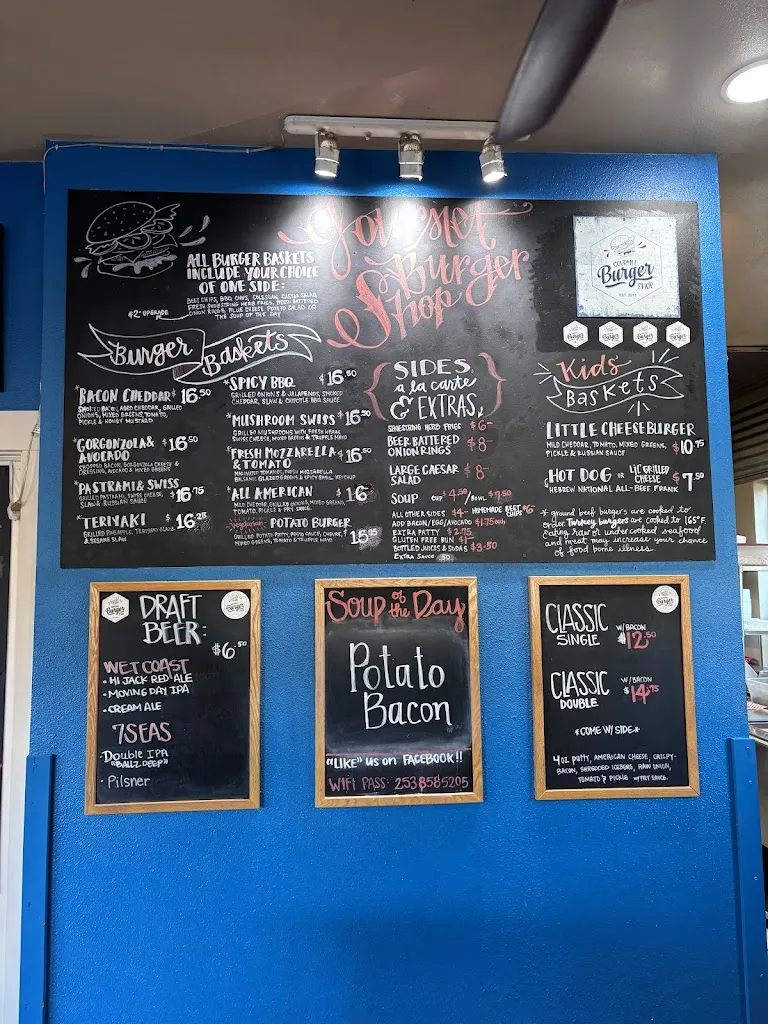 Gourmet
Burger
Shop
ALL BURGER BASKETS
INCLUDE YOUR CHOICE
OF ONE SIDE:
BEET CHIPS, BBQ CHIPS, COLESLAW, CAESAR SALAD,
FRESH SHOESTRING HERB FRIES, BEER BATTERED
ONION RINGS, BLUE CHEESE POTATO SALAD OR
THE SOUP OF THE DAY
$2- UPGRADE
GOURMET
Burger
SHOP
Burger Baskets
*BACON CHEDDAR $16.50
SMOKED BACON, AGED CHEDDAR, GRILLED
ONIONS, MIXED GREENS, TOMATO,
PICKLE & HONEY MUSTARD
*GORGONZOLA & $16.50
AVOCADO
CHOPPED BACON, GORGONZOLA CHEESE &
DRESSING, AVOCADO & MIXED GREENS
*PASTRAMI & SWISS $16.75
GRILLED PASTRAMI, SWISS CHEESE,
SLAW & RUSSIAN SAUCE
*TERIYAKI $16.25
GRILLED PINEAPPLE, TERIYAKI GLAZE
& SESAME SLAW
*SPICY BBQ $16.50
GRILLED ONIONS & JALAPENOS, SMOKED
CHEDDAR, SLAW & CHIPOTLE BBQ SAUCE
*MUSHROOM SWISS $16.50
GRILLED MUSHROOMS WITH FRESH HERBS,
SWISS CHEESE, MIXED GREENS & TRUFFLE MAYO
*FRESH MOZZARELLA $16.50
& TOMATO
BALSAMIC GLAZED GREENS & SPICY BASIL KETCHUP
*ALL AMERICAN $16-
MILD CHEDDAR, GRILLED ONIONS, MIXED GREENS,
TOMATO, PICKLE & FRY SAUCE
-vegetarian- POTATO BURGER $15.95
GRILLED POTATO PATTY, PESTO SAUCE, CHEVRE,
MIXED GREENS, TOMATO & TRUFFLE MAYO
SIDES
a la carte
& EXTRAS
SHOESTRING HERB FRIES $6-
BEER BATTERED $8-
ONION RINGS
LARGE CAESAR $8-
SALAD
SOUP CUP $4.50 / BOWL $7.50
ALL OTHER SIDES $4- HOMEMADE BEET CHIPS $6
ADD BACON/EGG/AVOCADO $1.75 each
EXTRA PATTY $2.75
GLUTEN FREE BUN $1-
BOTTLED JUICES & SODAS $3.50
EXTRA SAUCE .50
Kids'
BASKETS
LITTLE CHEESEBURGER
MILD CHEDDAR, TOMATO, MIXED GREENS, $10.75
PICKLE & RUSSIAN SAUCE
*HOT DOG OR LIL' GRILLED CHEESE $7.50
HEBREW NATIONAL ALL-BEEF FRANK
* ground beef burgers are cooked to
order. Turkey burgers are cooked to 165°F.
Eating raw or undercooked seafood
and meat may increase your chance
of food borne illness.
DRAFT
BEER:
$6.50
WET COAST
• HI JACK RED ALE
• MOVING DAY IPA
• CREAM ALE
7SEAS
• Double IPA
"BALLZ DEEP"
• Pilsner
Soup of the Day
Potato
Bacon
"LIKE" US ON FACEBOOK!!
WIFI PASS: 2538585205
CLASSIC W/ BACON
SINGLE $12.50
CLASSIC W/ BACON
DOUBLE $14.75
*COME W/ SIDE*
4 OZ PATTY, AMERICAN CHEESE, CRISPY
BACON, SHREDDED ICEBERG, RAW ONION,
TOMATO & PICKLE W/ FRY SAUCE.